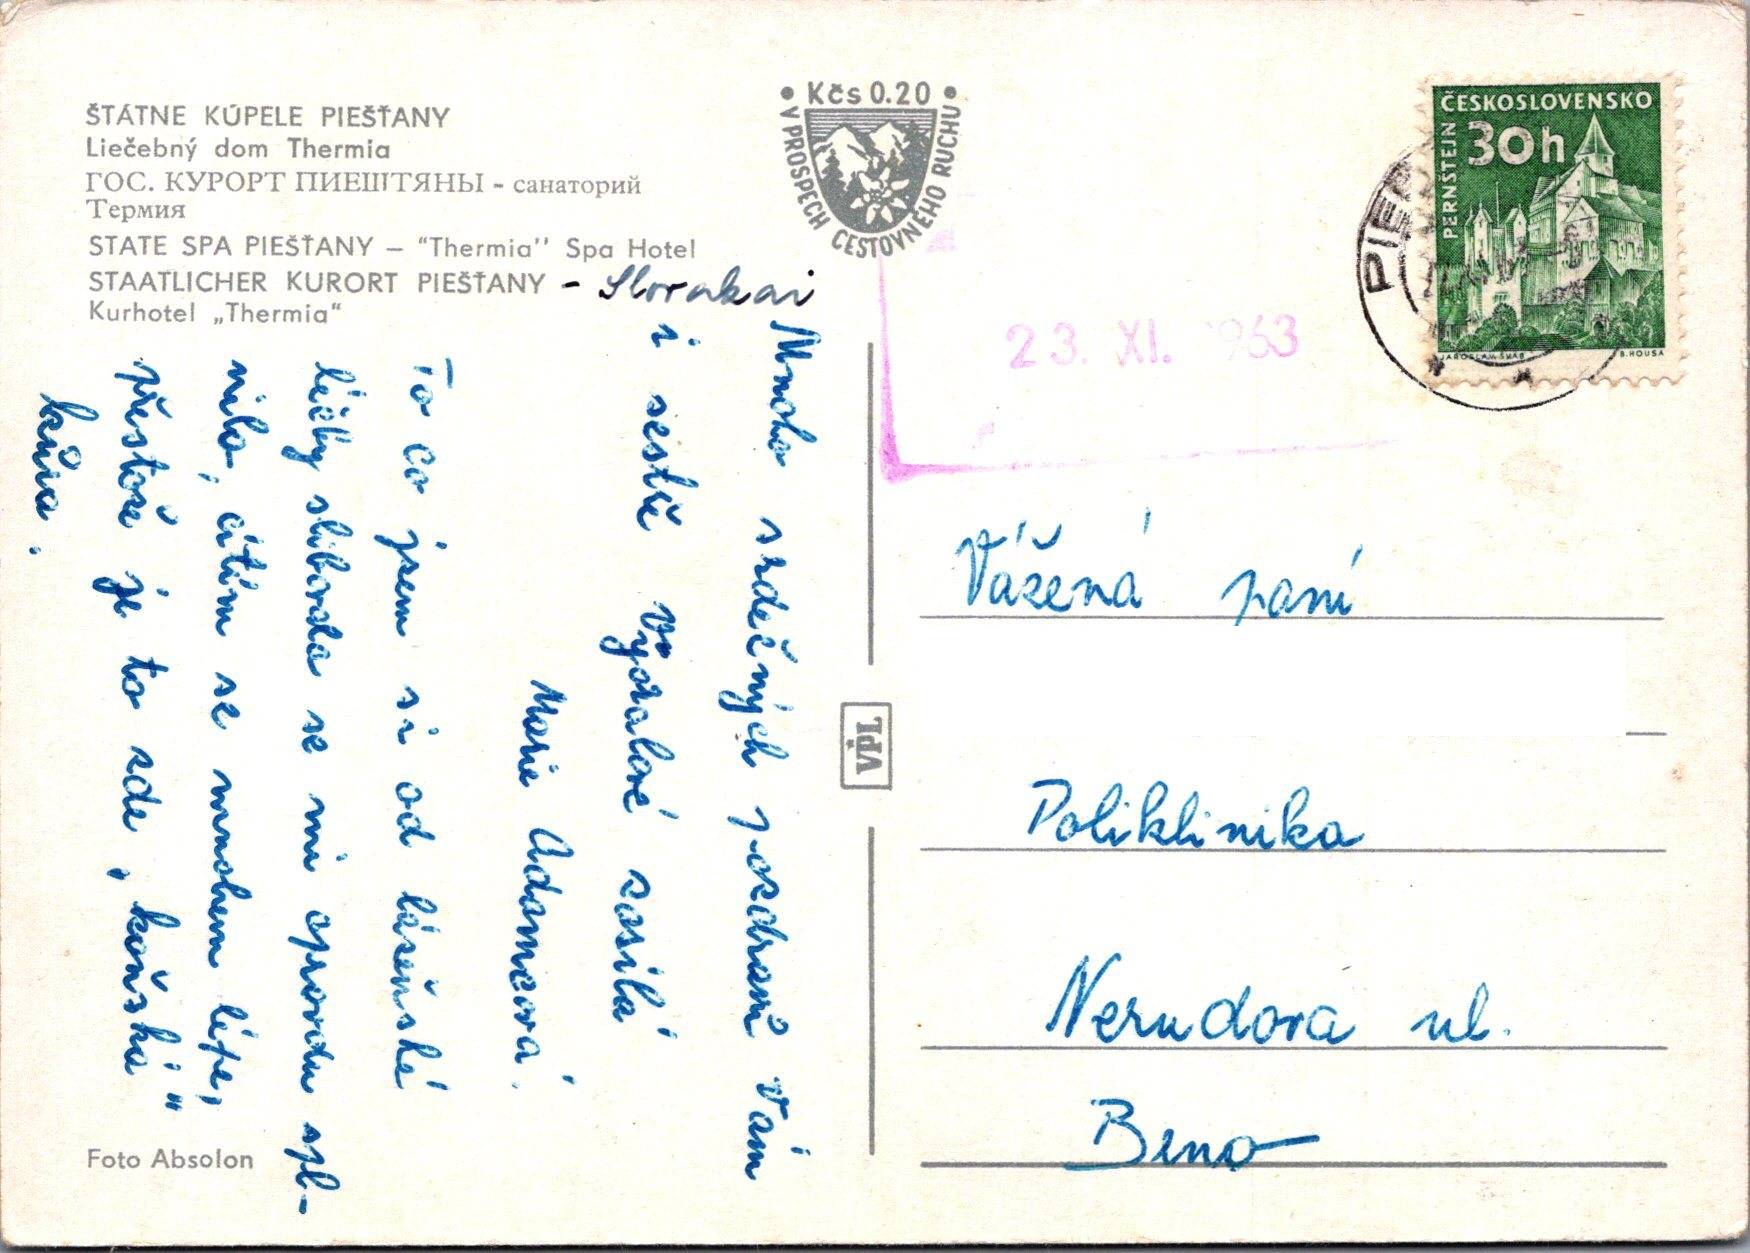 ŠTÁTNE KÚPELE PIEŠŤANY
Liečebný dom Thermia
ГОС. КУРОРТ ПИЕШТЯНЫ - санаторий
Термия
STATE SPA PIEŠŤANY — “Thermia’’ Spa Hotel
STAATLICHER KURORT PIEŠŤANY - Slovakai
Kurhotel „Thermia“
• Kčs 0.20 •
V PROSPECH CESTOVNÉHO RUCHU
ČESKOSLOVENSKO
PERNŠTEJN
30h
JAROSLAV ŠVÁB
B. HOUSA
PIEŠ
23. XI. 1963
Mnoho srdečných pozdravů Vám
i sestře Výtalové zasílá
Marie Adamcová.
To co jsem si od lázeňské
léčby slibovala se mi opravdu spl-
nilo, cítím se mnohem lépe,
přestože je to zde „koňská"
kůra.
VPL
Vážená paní
Poliklinika
Nerudova ul.
Brno
Foto Absolon